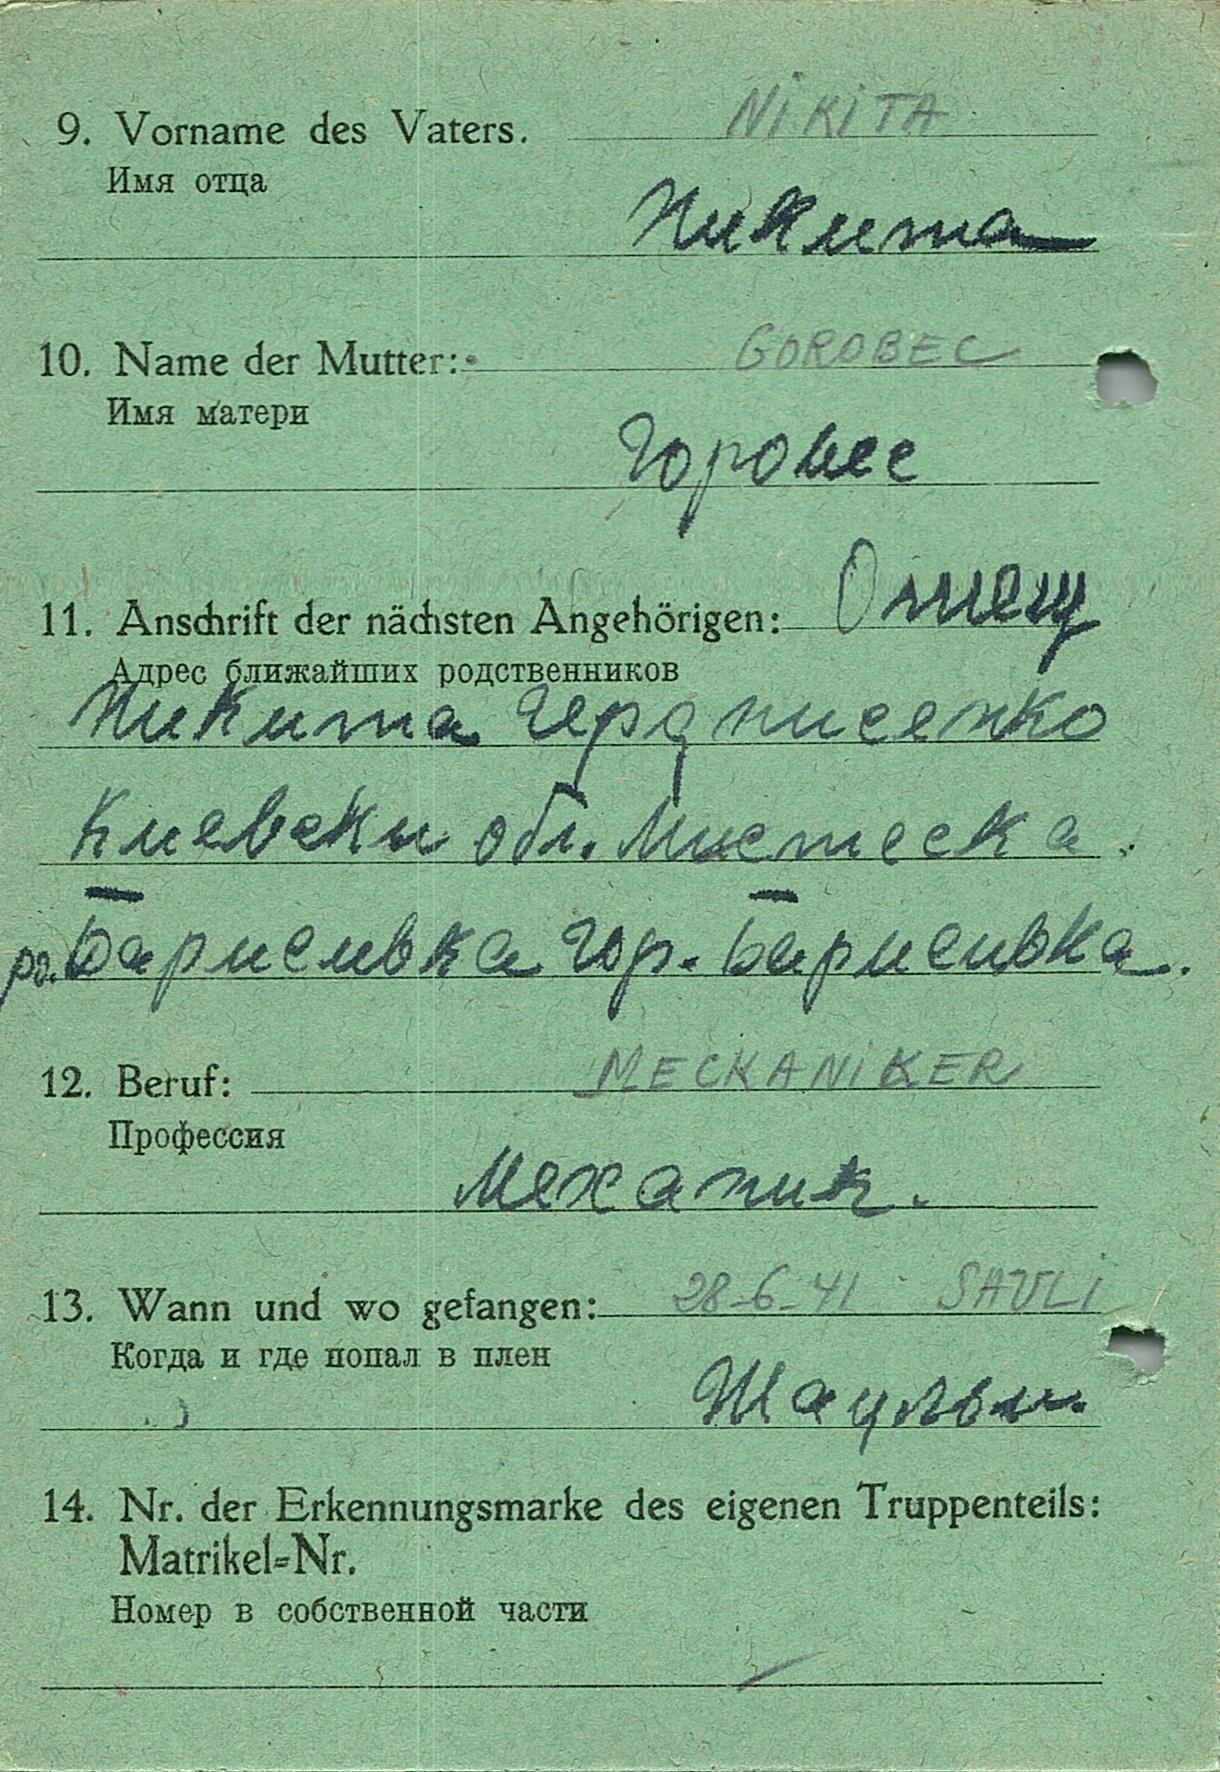 9. Vorname des Vaters. NiKiTA
Имя отца
Никита
10. Name der Mutter: GOROBEC
Имя матери
Горовес
11. Anschrift der nächsten Angehörigen: Отец
Адрес ближайших родственников
Никита
Киевски обл. Мистеска.
ра. Барисивка Гор. Барисивка.
12. Beruf: MECKANiKER
Профессия
Механик.
13. Wann und wo gefangen: 28-6-41 SAULi
Когда и где попал в плен
Шаульи.
14. Nr. der Erkennungsmarke des eigenen Truppenteils:
Matrikel=Nr.
Номер в собственной части